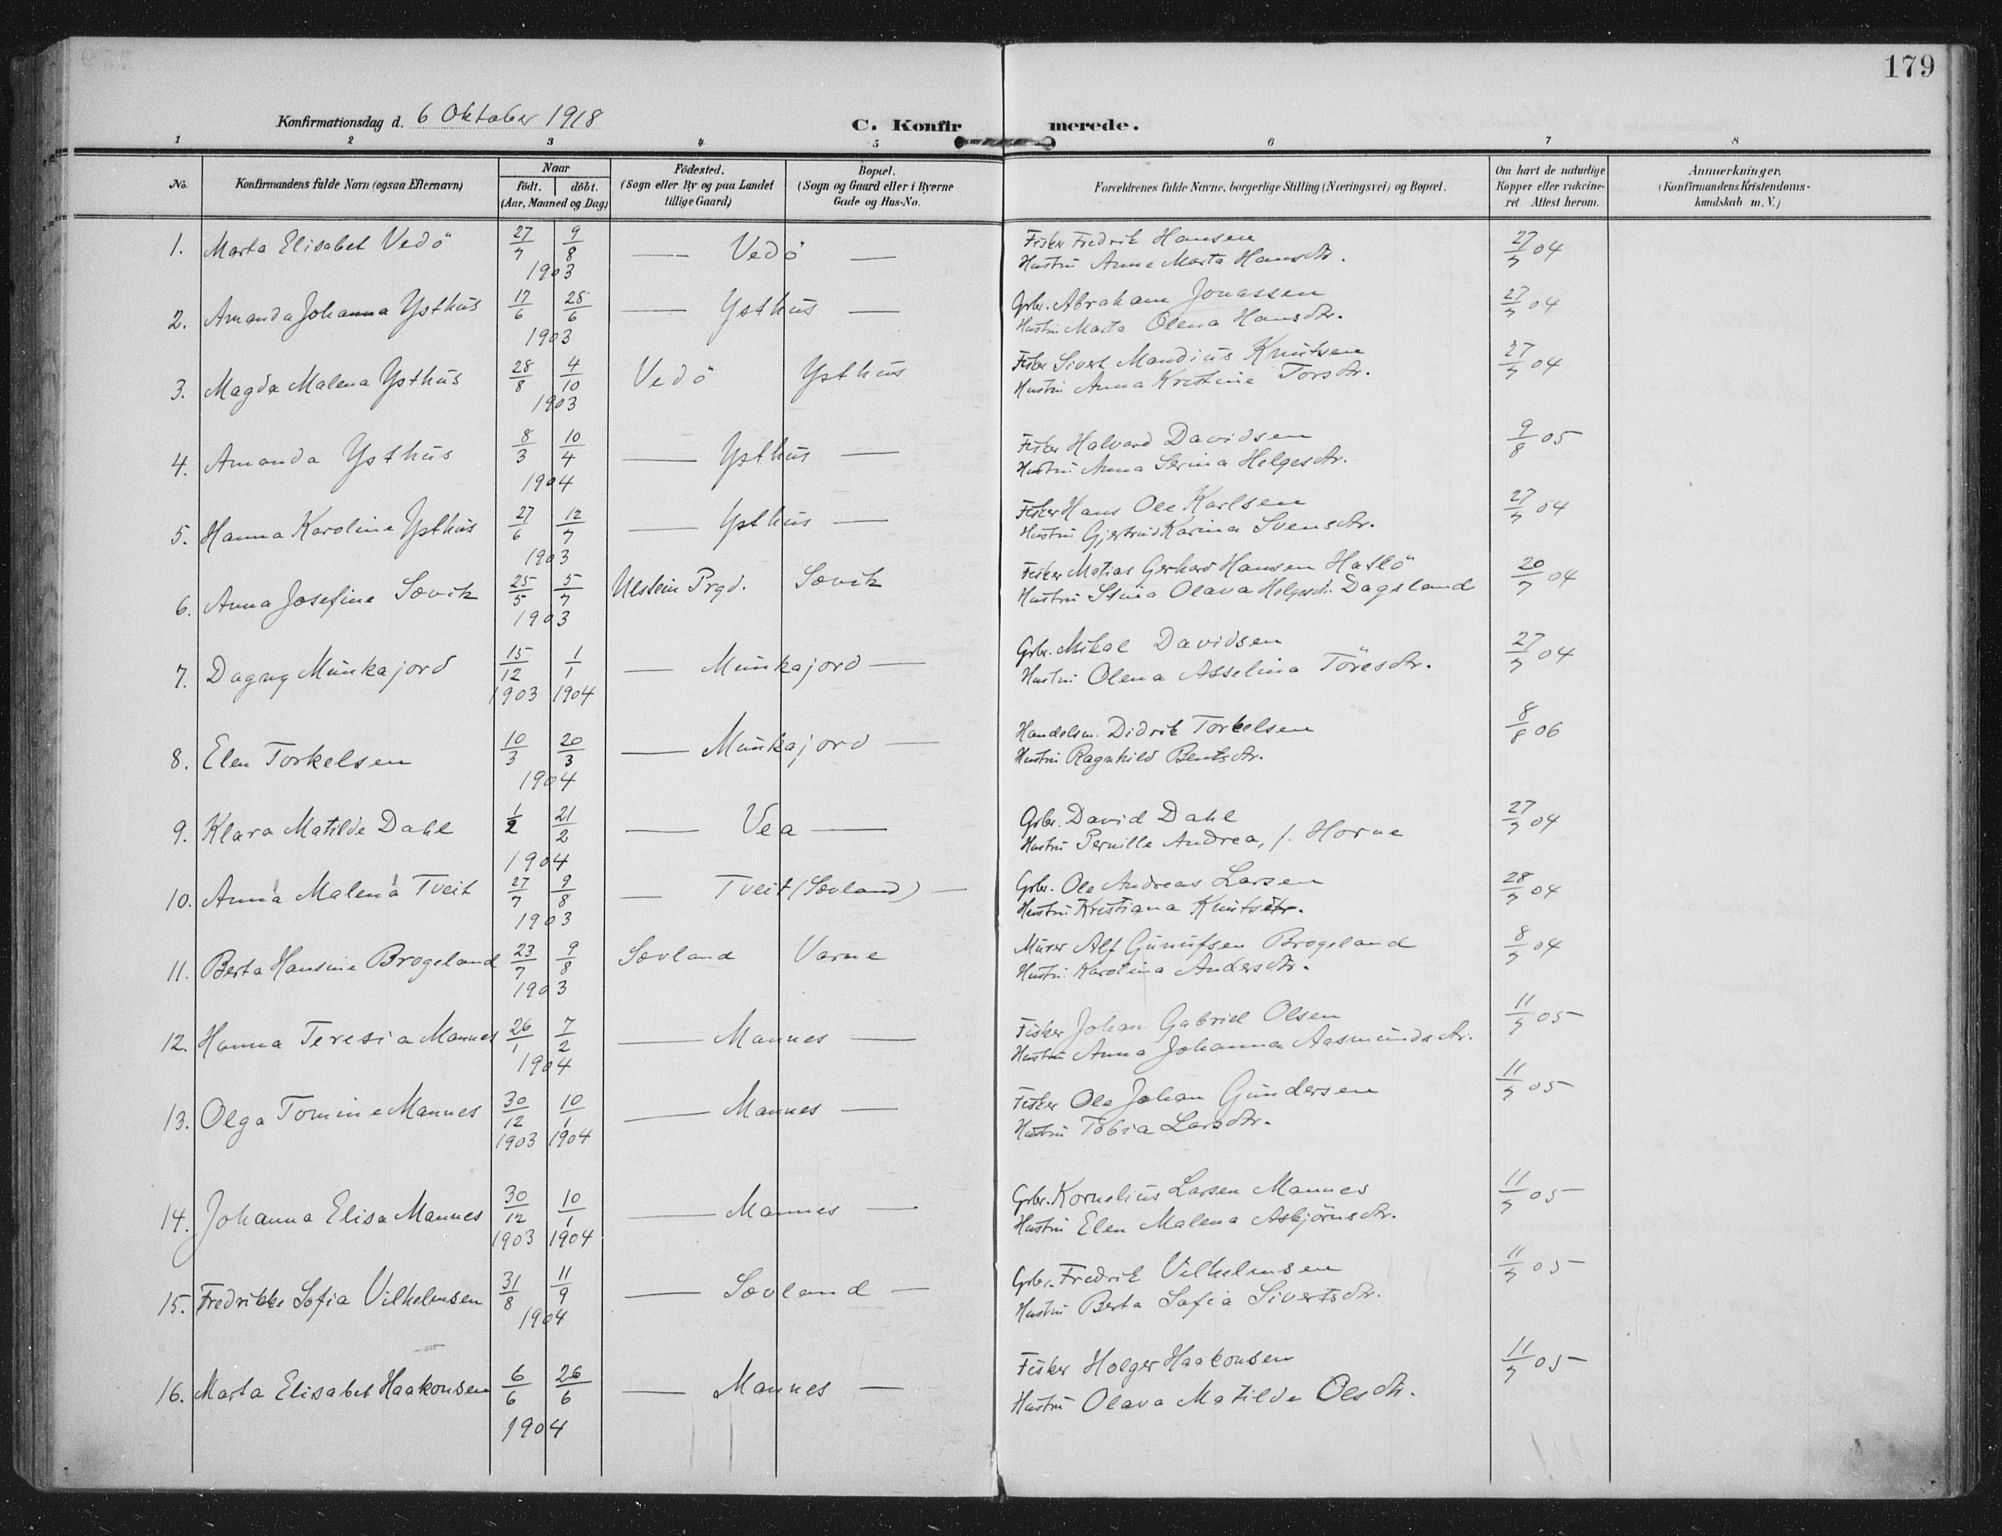 179
Konfirmationsdag d. 6 Oktober 1918
C. Konfirmerede.
1 2 3 4 5 6 7 8
No. Konfirmandens fulde Navn (ogsaa Efternavn) Naar födt. döbt. (Aar, Maaned og Dag) Födested. (Sogn eller By og paa Landet tillige Gaard) Bopæl. (Sogn og Gaard eller i Byerne Gade og Hus-No. Forældrenes fulde Navne, borgerlige Stilling (Næringsvei) og Bopæl. Om havt de naturlige Kopper eller vakcineret. Attest herom. Anmærkninger. (Konfirmandens Kristendomskundskab m. V.)
1. Marta Elisabet Vedö 27/7 9/8 1903 — Vedö — Fisker Fredrik Hansen 27/7 04
Hustru Anne Marta Hansdtr.
2. Amanda Johanna Ysthus 17/6 28/6 1903 — Ysthus — Grbr. Abraham Jonassen 27/7 04
Hustru Marta Olena Hansdtr.
3. Magda Malena Ysthus 28/8 4/10 1903 Vedö Ysthus Fisker Sivert Mandius Knutsen 27/7 04
Hustru Anna Kristine Torsdtr.
4. Amanda Ysthus 8/3 10/4 1904 — Ysthus — Fisker Halvard Davidsen 9/8 05
Hustru Anna Serina Helgesdtr.
5. Hanna Karoline Ysthus 27/6 12/7 1903 — Ysthus — Fisker Hans Ole Karlsen 27/7 04
Hustru Gjertrud Karina Svensdtr.
6. Anna Josefine Sævik 25/5 5/7 1903 Ulstein Prgd. Sævik Fisker Matias Gerhard Hansen Haslö 20/7 04
Hustru Stina Olava Helgesd. Dagsland
7. Dagny Munkajord 15/12 1903 1/1 1904 — Munkajord — Grbr. Mikal Davidsen 27/7 04
Hustru Olena Asselina Töresdtr.
8. Elen Torkelsen 10/3 20/3 1904 — Munkajord — Handelsm. Didrik Torkelsen 8/8 06
Hustru Ragnhild Bentsdtr.
9. Klara Matilde Dahl 1/2 21/2 1904 — Vea — Grbr. David Dahl 27/7 04
Hustru Pernille Andrea, f. Horne
10. Anna Malena Tveit 27/7 9/8 1903 — Tveit (Sævland) — Grbr. Ole Andreas Larsen 28/7 04
Hustru Kristiana Knutsdtr.
11. Berta Hansine Brogeland 23/7 9/8 1903 Sævland Varne Murer Alf Gunufsen Brogeland 8/7 04
Hustru Karolina Andersdtr.
12. Hanna Teresia Mannes 26/1 7/2 1904 — Mannes — Fisker Johan Gabriel Olsen 11/7 05
Hustru Anna Johanna Aasmundsdtr.
13. Olga Tomine Mannes 30/12 1903 10/1 1904 — Mannes — Fisker Ole Johan Gundersen 11/7 05
Hustru Tobia Larsdtr.
14. Johanna Elisa Mannes 30/12 1903 10/1 1904 — Mannes — Grbr. Kornelius Larsen Mannes 11/7 05
Hustru Elen Malena Asbjörnsdtr.
15. Fredrikke Sofia Vilhelmsen 31/8 11/9 1904 — Sævland — Grbr. Fredrik Vilhelmsen 11/7 05
Hustru Berta Sofia Sivertsdtr.
16. Marta Elisabet Haakonsen 6/6 26/6 1904 — Mannes — Fisker Holger Haakonsen 11/7 05
Hustru Olava Matilde Olsdtr.